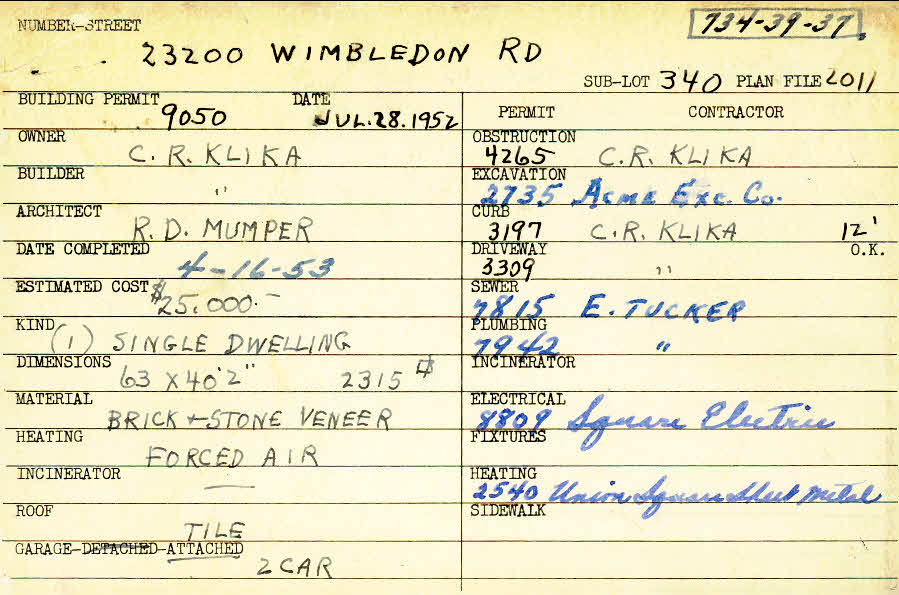 NUMBER-STREET
734-39-37
23200 WIMBLEDON RD
SUB-LOT 340 PLAN FILE 2011
BUILDING PERMIT 9050 DATE JUL.28.1952
OWNER C. R. KLIKA
BUILDER "
ARCHITECT R. D. MUMPER
DATE COMPLETED 4-16-53
ESTIMATED COST $25,000.-
KIND (1) SINGLE DWELLING
DIMENSIONS 63 X 40'2" 2315
MATERIAL BRICK + STONE VENEER
HEATING FORCED AIR
INCINERATOR —
ROOF TILE
GARAGE-DETACHED-ATTACHED 2 CAR
PERMIT CONTRACTOR
OBSTRUCTION 4265 C.R. KLIKA
EXCAVATION 2735 Acme Exc. Co.
CURB 3197 C.R. KLIKA 12'
DRIVEWAY 3309 " O.K.
SEWER 7815 E. TUCKER
PLUMBING 7942 "
INCINERATOR
ELECTRICAL 8809 Square Electric
FIXTURES
HEATING 2540 Union Square Sheet Metal
SIDEWALK